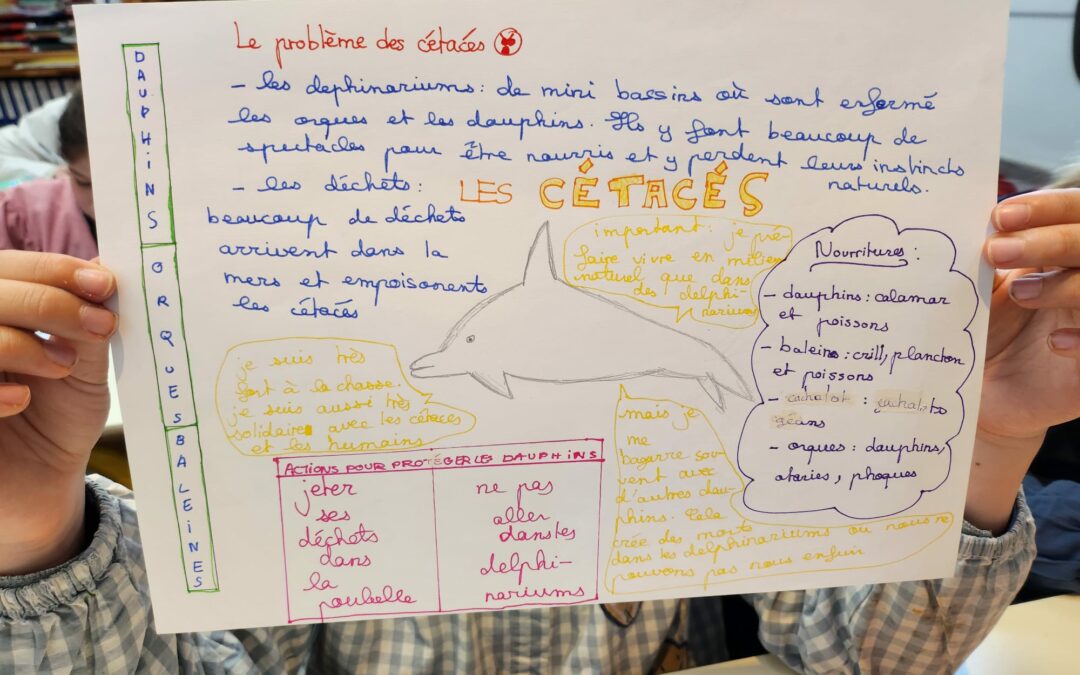 Le problème des cétacés
- les dephinariums : de mini bassins où sont enfermé
les orques et les dauphins. Ils y font beaucoup de
spectacles pour être nourris et y perdent leurs instincts
naturels.
- les déchets :
beaucoup de déchets
arrivent dans la
mers et empoisonents
les cétacés
DAUPHINS
ORQUES
BALEINES
LES CÉTACÉS
important : je pré-
faire vivre en milieu
naturel que dans
des delphi-
nariums
Nourritures :
- dauphins : calamar
et poissons
- baleins : crill, planchon
et poissons
- cachalot : cachalots
géans
- orques : dauphins,
otaries, phoques
je suis très
fort à la chasse.
je suis aussi très
solidaire avec les cétacés
et les humains
mais je
me
bagarre sou-
vent avec
d'autres dau-
phins. Cela
crée des morts
dans les delphinariums où nous ne
pouvons pas nous enfuir
ACTIONS POUR PROTÉGER LES DAUPHINS
jeter
ses
déchets
dans
la
poubelle
ne pas
aller
dans les
delphi-
nariums